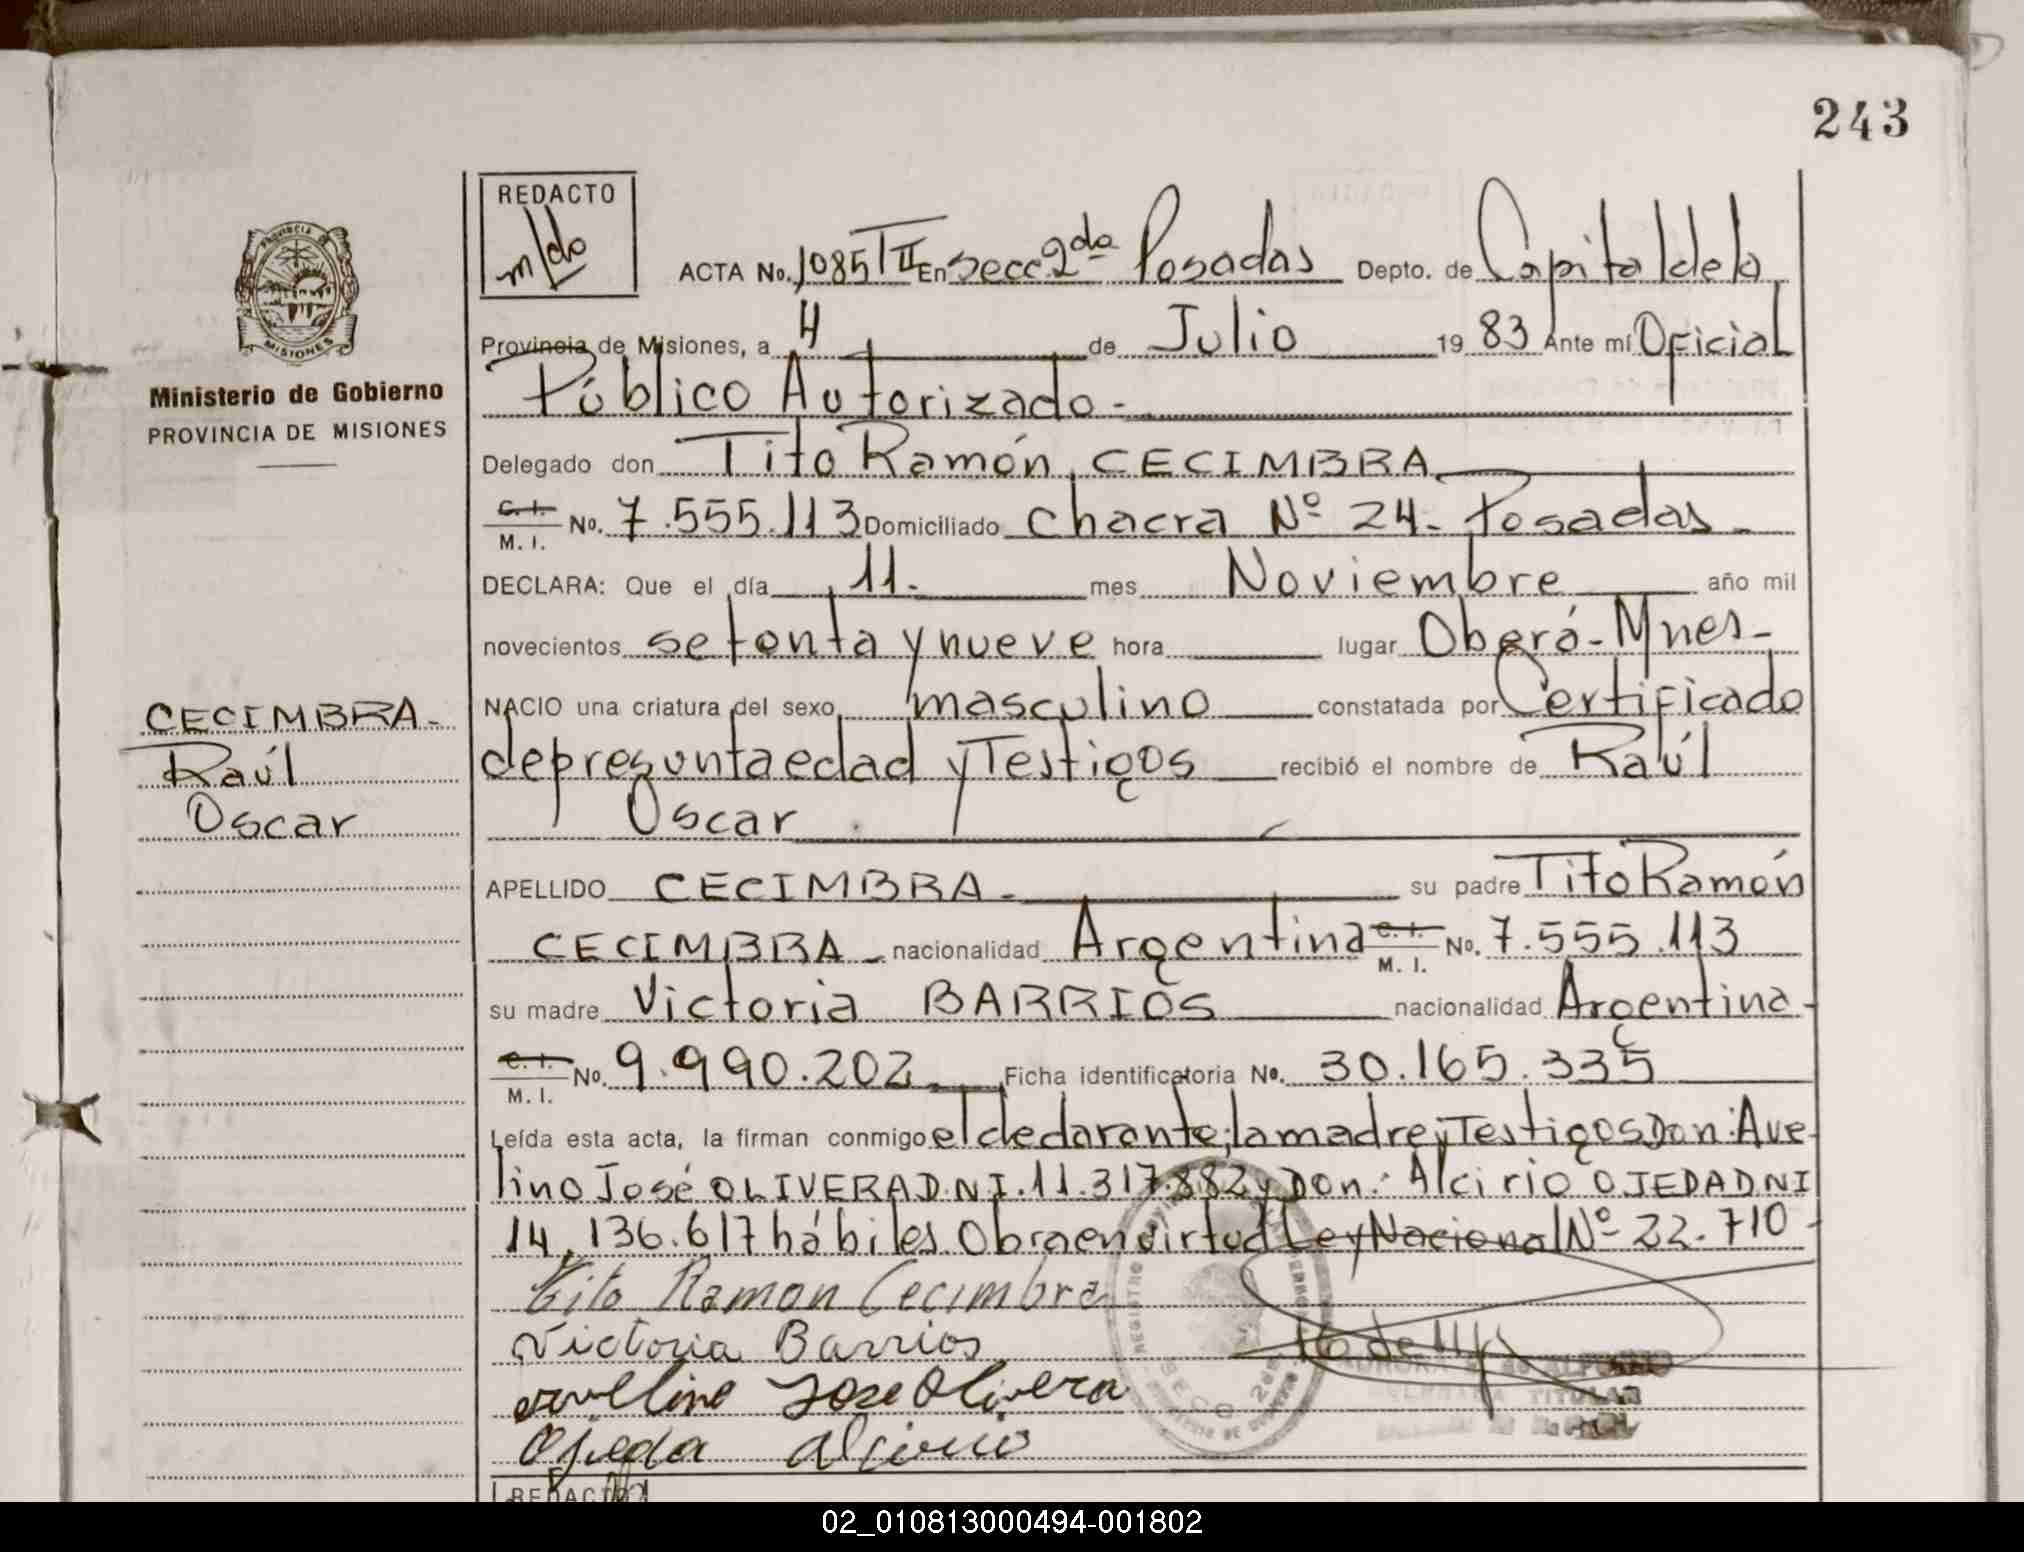 243
REDACTO
ACTA No. 1085 T II En secc 2da Posadas Depto. de Capital de la
Provincia de Misiones, a 4 de Julio 1983 Ante mí Oficial
Público Autorizado-
Ministerio de Gobierno
PROVINCIA DE MISIONES
PROVINCIA DE
MISIONES
Delegado don Tito Ramón CECIMBRA
C. I.
M. I. No. 7.555.113 Domiciliado chacra Nº 24- Posadas-
DECLARA: Que el día 11- mes Noviembre año mil
novecientos setenta y nueve hora lugar Oberá-Mnes-
NACIO una criatura del sexo masculino constatada por Certificado
de presunta edad y Testigos recibió el nombre de Raúl
Oscar
CECIMBRA-
Raúl
Oscar
APELLIDO CECIMBRA- su padre Tito Ramón
CECIMBRA- nacionalidad Argentina C. I.
M. I. No. 7.555.113
su madre Victoria BARRIOS nacionalidad Argentina-
C. I.
M. I. No. 9.990.202- Ficha identificatoria No. 30.165.335
Leída esta acta, la firman conmigo el declarante, la madre y Testigos Don: Ave-
lino José OLIVERA D.N.I. 11.317.882 y Don: Alcirio OJEDA DNI
14.136.617 hábiles. Obra en virtud Ley Nacional Nº 22.710-
Tito Ramon Cecimbra
Victoria Barrios
Avelino Jose Olivera
Ojeda Alcirio
TITULAR
REDACTO
02_010813000494-001802